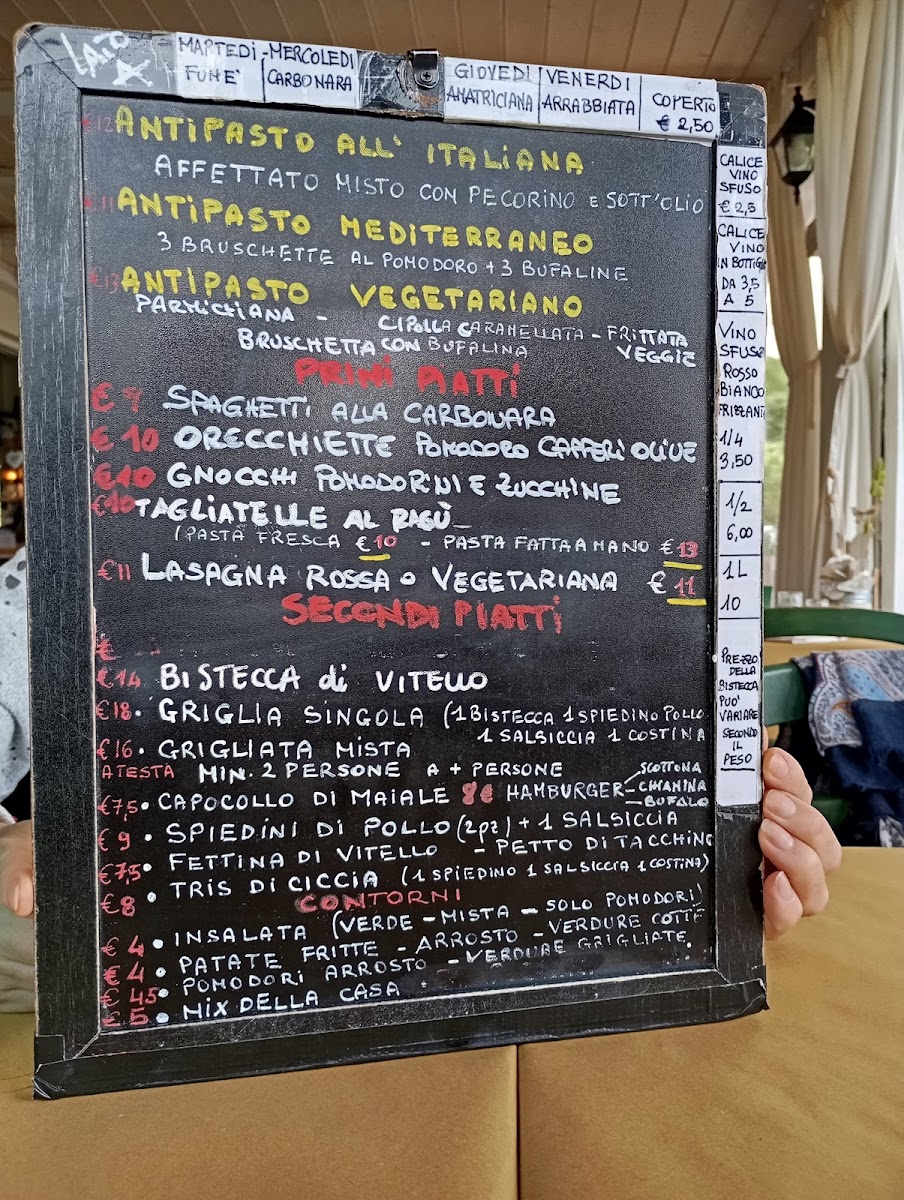 LATO A
MARTEDÌ FUME'
MERCOLEDI CARBONARA
GIOVEDI AMATRICIANA
VENERDI ARRABBIATA
COPERTO € 2,50
€12 ANTIPASTO ALL' ITALIANA
AFFETTATO MISTO CON PECORINO E SOTT'OLIO
€11 ANTIPASTO MEDITERRANEO
3 BRUSCHETTE AL POMODORO + 3 BUFALINE
€13 ANTIPASTO VEGETARIANO
PARMIGIANA - CIPOLLA CARAMELLATA - FRITTATA VEGGIE
BRUSCHETTA CON BUFALINA
PRIMI PIATTI
€ 9 SPAGHETTI ALLA CARBONARA
€ 10 ORECCHIETTE POMODORO CAPPERI OLIVE
€10 GNOCCHI POMODORINI E ZUCCHINE
€10 TAGLIATELLE AL RAGÙ
(PASTA FRESCA €10 - PASTA FATTA A MANO €13
€11 LASAGNA ROSSA O VEGETARIANA € 11
SECONDI PIATTI
€
€14 BISTECCA di VITELLO
€18. GRIGLIA SINGOLA (1 BISTECCA 1 SPIEDINO POLLO
1 SALSICCIA 1 COSTINA
€16. GRIGLIATA MISTA
A TESTA MIN. 2 PERSONE A + PERSONE
€7,5. CAPOCOLLO DI MAIALE 8€ HAMBURGER - SCOTTONA
- CHIANINA
- BUFALO
€ 9 . SPIEDINI DI POLLO (2pz) + 1 SALSICCIA
€7,5. FETTINA DI VITELLO - PETTO DI TACCHINO
€8 . TRIS DI CICCIA (1 SPIEDINO 1 SALSICCIA 1 COSTINA)
CONTORNI
€ 4 . INSALATA (VERDE - MISTA - SOLO POMODORI)
€ 4 . PATATE FRITTE - ARROSTO - VERDURE COTTE
€ 4,5 . POMODORI ARROSTO - VERDURE GRIGLIATE.
€ 5 . MIX DELLA CASA
CALICE
VINO
SFUSO
€ 2,5
CALICE
VINO
IN BOTTIGLIA
DA 3,5
A 5
VINO
SFUSO
ROSSO
BIANCO
FRIZZANTE
1/4
3,50
1/2
6,00
1L
10
PREZZO
DELLA
BISTECCA
PUO'
VARIARE
SECONDO
IL
PESO